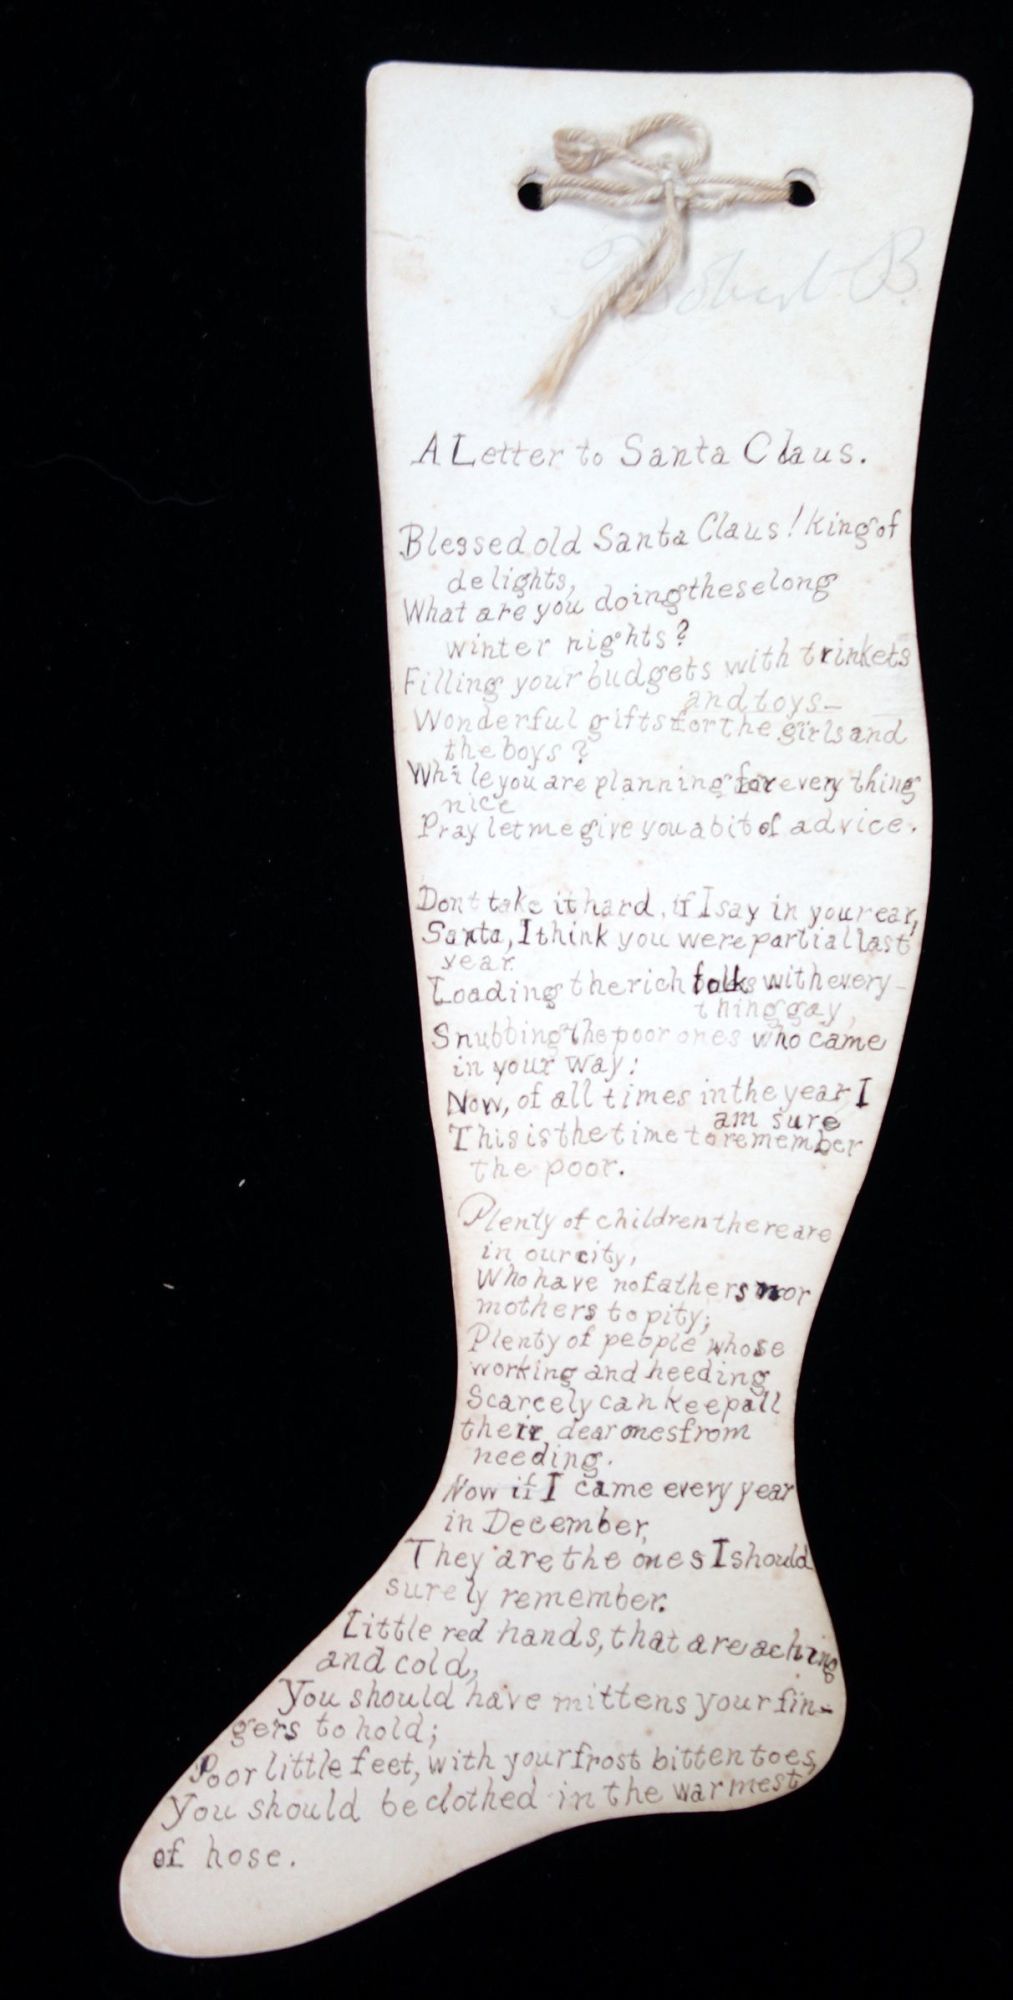 Robert B.
A Letter to Santa Claus.
Blessed old Santa Claus! King of
delights,
What are you doing these long
winter nights?
Filling your budgets with trinkets
and toys—
Wonderful gifts for the girls and
the boys?
While you are planning for every thing
nice
Pray let me give you a bit of advice.
Dont take it hard, if I say in your ear,
Santa, I think you were partial last
year.
Loading the rich folks with every-
thing gay,
Snubbing the poor ones who came
in your way:
Now, of all times in the year, I
am sure
This is the time to remember
the poor.
Plenty of children there are
in our city,
Who have no fathers nor
mothers to pity;
Plenty of people whose
working and heeding
Scarcely can keep all
their dear ones from
needing.
Now if I came every year
in December,
They are the ones I should
surely remember.
Little red hands, that are aching
and cold,
You should have mittens your fin-
gers to hold;
Poor little feet, with your frost bitten toes,
You should be clothed in the warmest
of hose.